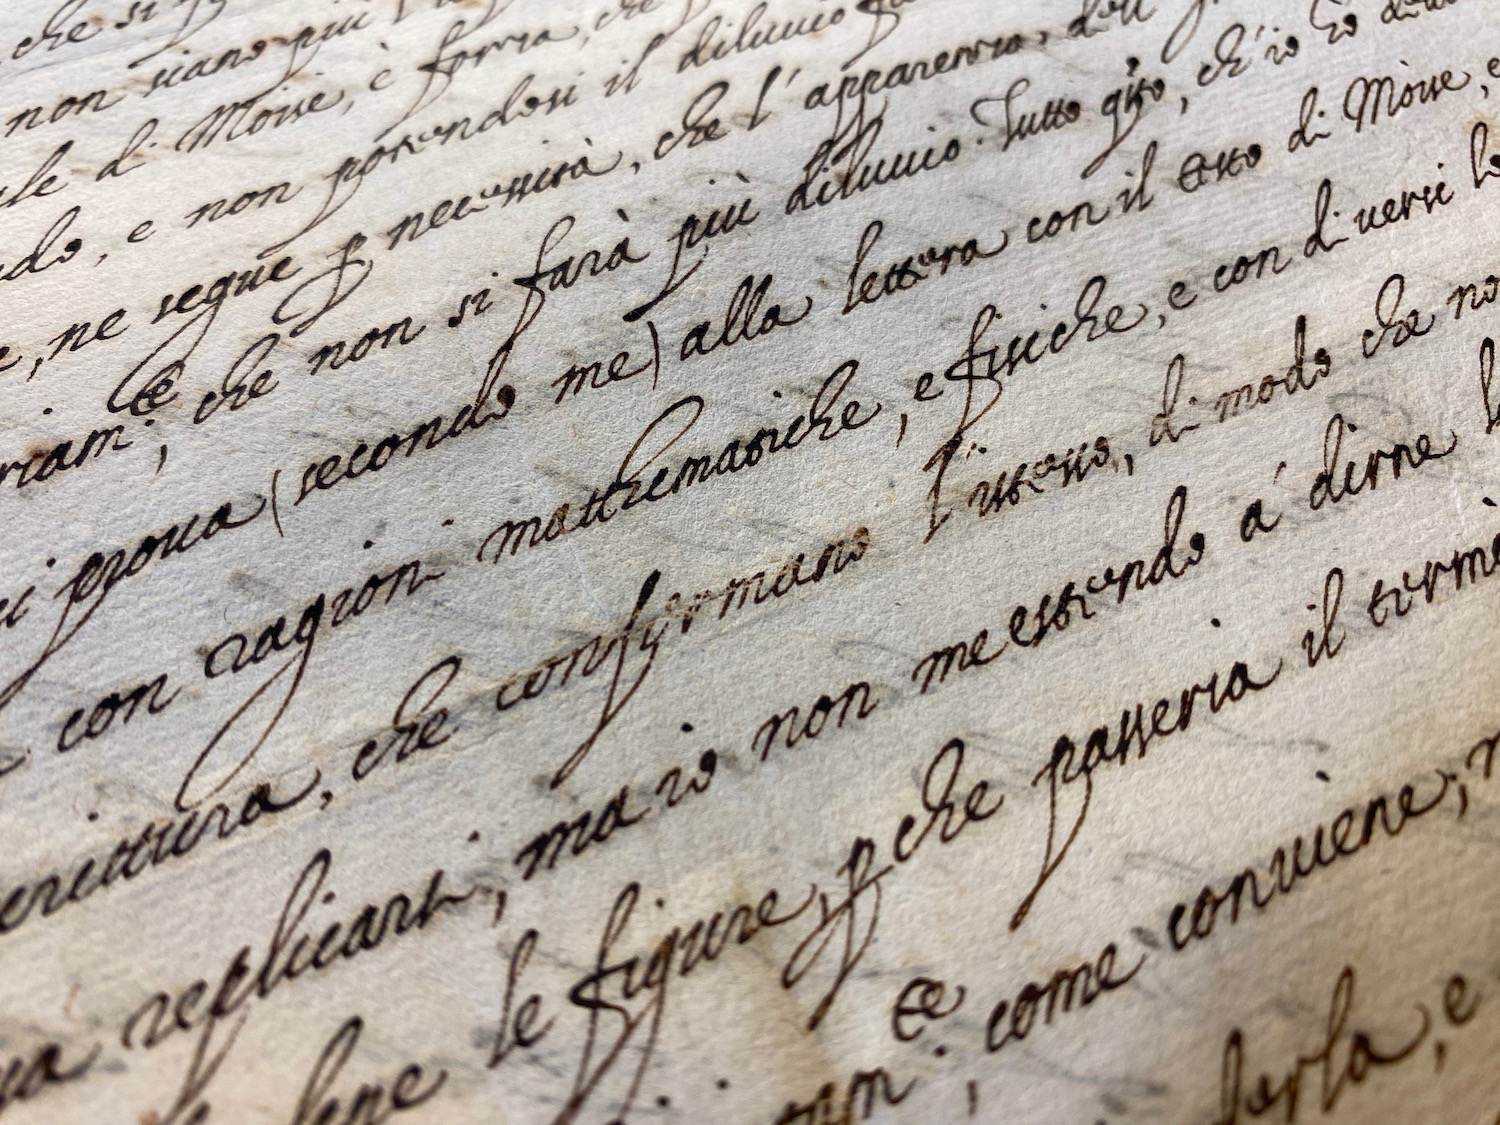 che si
non siano più
di Moise, è forza, che
e non potendosi il diluvio
, ne segue p necessità, che l'apparenza, dell'
riam.te, che non si farà più diluvio. Tutto q̃sto, ch'io hò
prova (secondo me) alla lettera con il testo di Moise, e
con ragioni matthematiche, e fisiche, e con diversi
scrittura, che confermano l'istesso, di modo che no
replicarti, ma io non me estendo à dirne
le figure, p che passeria il termi
am.te, come conviene;
darla, e